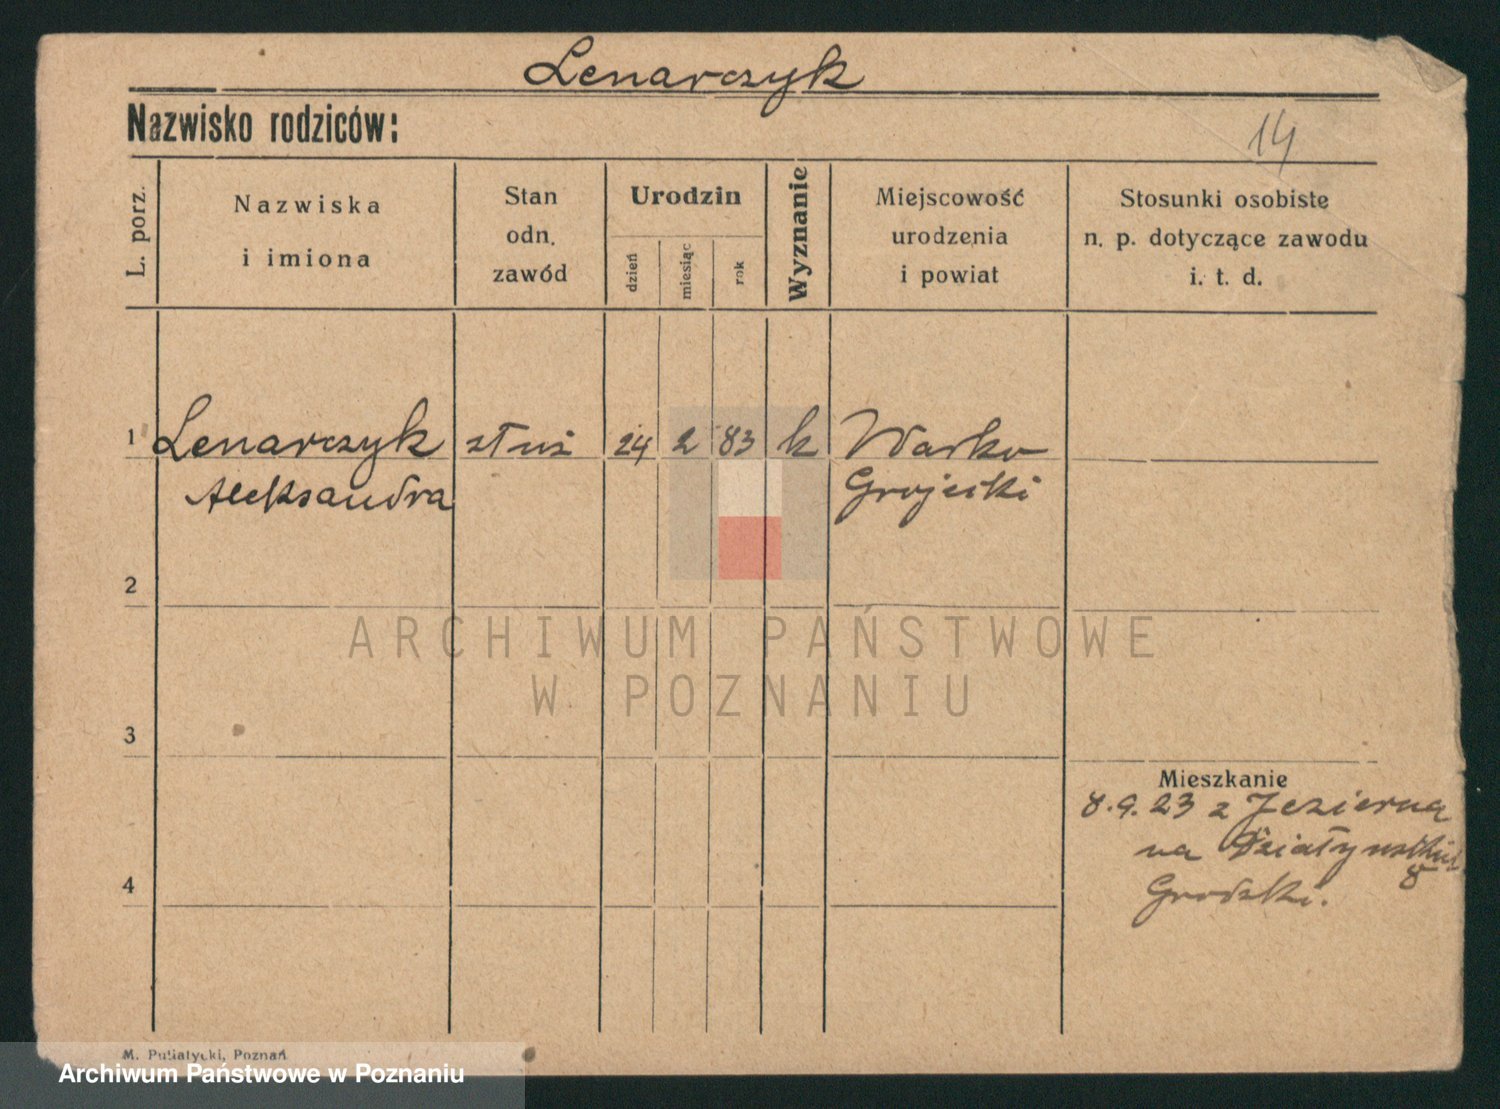 Lenarczyk
Nazwisko rodziców:
14
L. porz.
Nazwiska
i imiona
Stan
odn.
zawód
Urodzin
dzień
miesiąc
rok
Wyznanie
Miejscowość
urodzenia
i powiat
Stosunki osobiste
n. p. dotyczące zawodu
i. t. d.
1 Lenarczyk służ 24 2 83 k Warko
Aleksandra Grojecki
2
ARCHIWUM PAŃSTWOWE
W POZNANIU
3
Mieszkanie
8.9.23 z Jezierna
na
8
4
Grodzki.
M. Putiatycki, Poznań
Archiwum Państwowe w Poznaniu